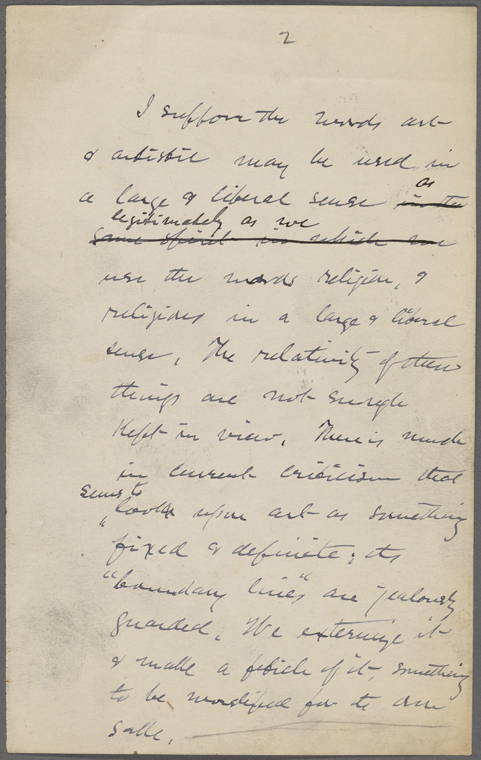 2
I suppose the words art
& artistic may be used in
a large & liberal sense in the as
legitimately as we
same spirit in which we
use the words religion, &
religious in a large & liberal
sense. The relativity of these
things are not enough
kept in view. There is much
in current criticism that
seems to
look upon art as something
fixed & definite; its
"boundary lines" are jealously
guarded. We externize it
& make a fetich of it, something
to be worshiped for its own
sake.